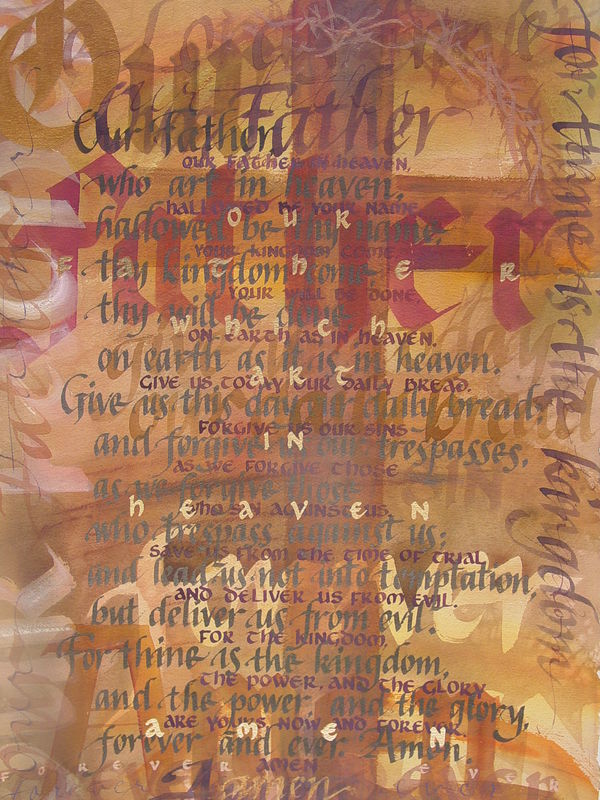 Our Father
Our Father
OUR FATHER IN HEAVEN,
who art in heaven,
HALLOWED BE YOUR NAME
OUR
hallowed be thy name,
YOUR KINGDOM COME
FATHER
thy kingdom come
YOUR WILL BE DONE,
thy will be done
which
ON EARTH AS IN HEAVEN.
on earth as it is in heaven.
ART
GIVE US TODAY OUR DAILY BREAD.
Give us this day our daily bread;
FORGIVE US OUR SINS
IN
and forgive us our trespasses,
AS WE FORGIVE THOSE
as we forgive those
heaven
WHO SIN AGAINST US.
who trespass against us;
SAVE US FROM THE TIME OF TRIAL
and lead us not into temptation,
AND DELIVER US FROM EVIL.
but deliver us from evil.
FOR THE KINGDOM,
For thine is the kingdom,
THE POWER, AND THE GLORY
and the power, and the glory,
ARE YOURS NOW AND FOREVER.
amen
forever and ever. Amen.
AMEN
FOREVER
EVER
forever
Amen
for thine is the kingdom
Our
Father